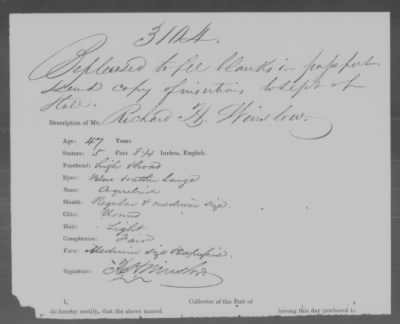 Be pleased to fill blanks in passport
& send copy of insertions to Dept of
State.
Description of Mr. Richard H. Winslow.
Age: 47 Years
Stature: 5 Feet 8 1/4 Inches, English.
Forehead: high & broad
Eyes: Blue & rather large
Nose: Aquiline
Mouth: Regular & medium size.
Chin: Round
Hair: Light
Complexion: Fair
Face: Medium size
Signature: R H Winslow
I, Collector of the Port of
do hereby certify, that the above named having this day produced to